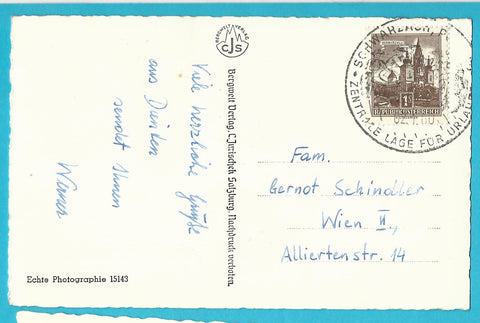 Viele herzliche Grüße
aus Dienten
sendet Ihnen
Werner
Echte Photographie 15143
BERGWELTVERLAG
CJS
Bergwelt Verlag, C. Jurischek Salzburg. Nachdruck verboten.
SCHWARZACH, P
ZENTRALE LAGE FÜR URLAUB
1
REPUBLIK ÖSTERREICH
Fam.
Gernot Schindler
Wien II,
Alliiertenstr. 14